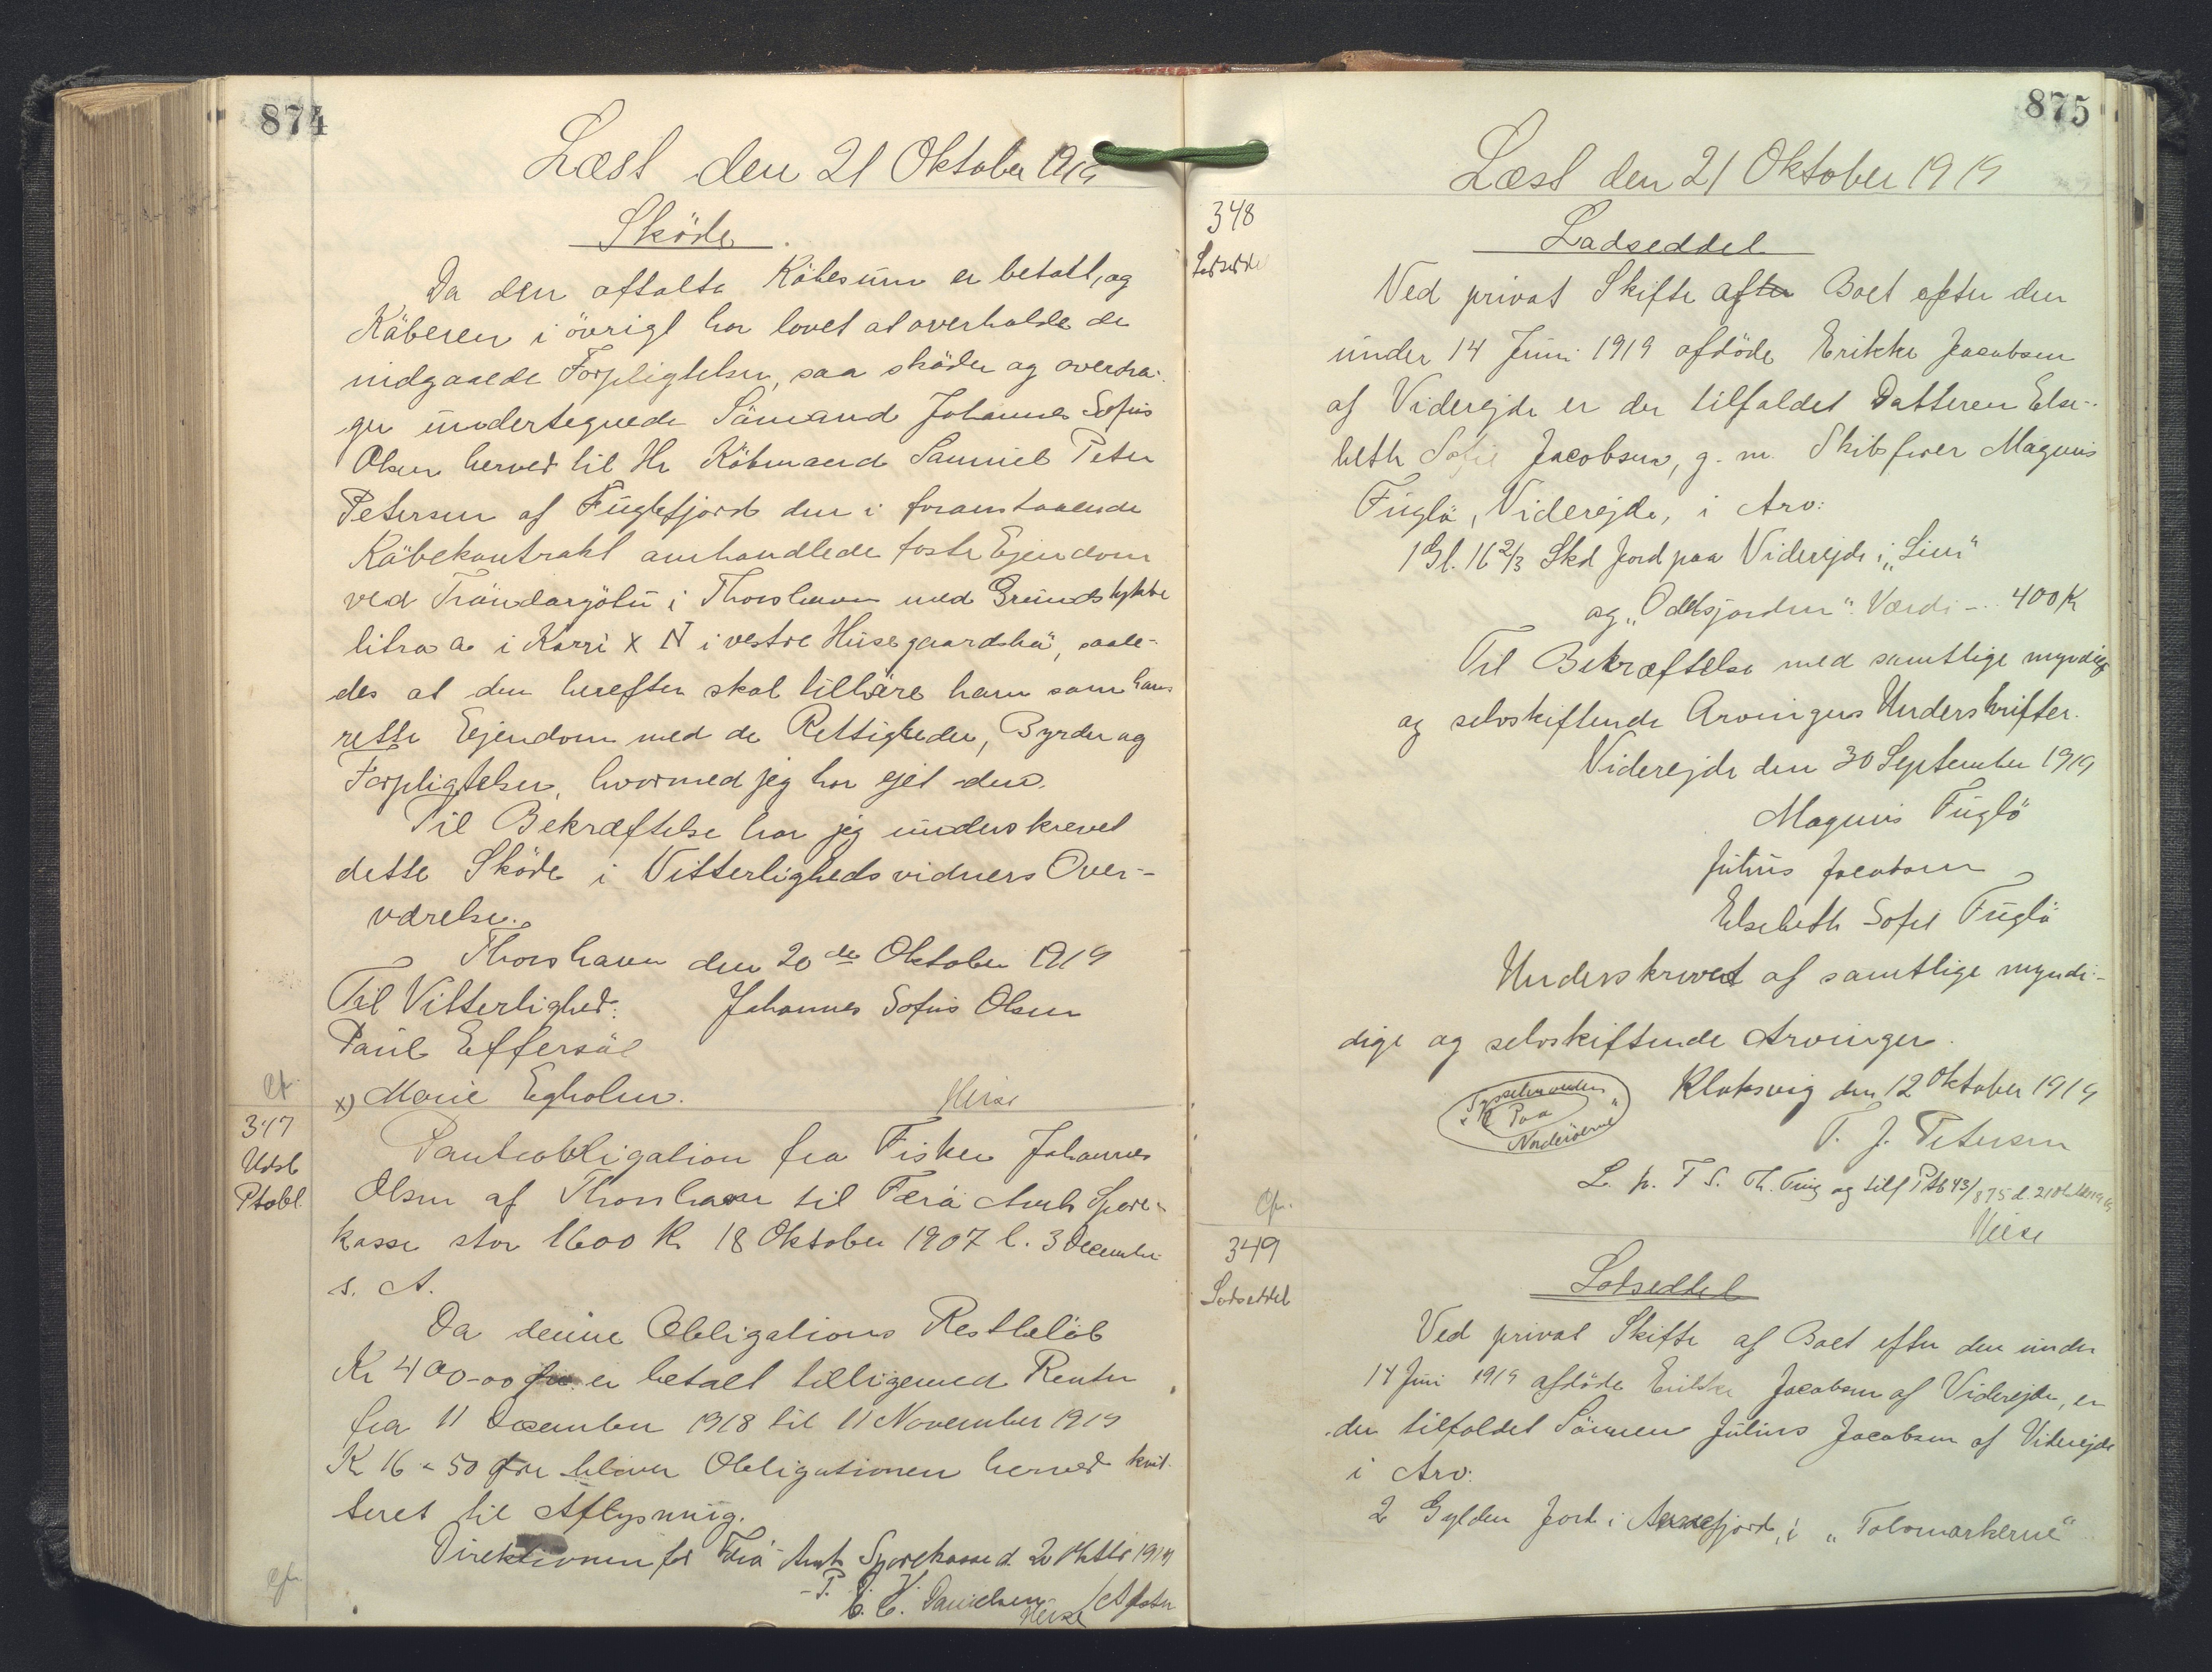 874
Læst den 21 Oktober 1919
Sköde
Da den aftalte Köbesum er betalt, og
Köberen i övrigt har lovet at overholde de
indgaaede Forpligtelser, saa sköder og overdra-
ger undertegnede Sömand Johannes Sofus
Olsen herved til Hr Köbmand Samuel Peter
Petersen af Fuglefjord den i foranstaaende
Köbekontrakt omhandlede faste Ejendom
ved Tróndargötu i Thorshavn med Grundstykke
litra a i Karri x N i vestre Husegaardshá, saale-
des at den herefter skal tilhöre ham som hans
rette Ejendom med de Rettigheder, Byrder og
Forpligtelser, hvormed jeg har ejet den.
Til Bekræftelse har jeg underskrevet
dette Sköde i Vitterlighedsvidners Over-
værelse.
Thorshavn den 20de Oktober 1919
Til Vitterlighed: Johannes Sofus Olsen
Paul Effersöe
cfr.
x) Marie Egholm. Heise
347
Udsl
Ptobl.
Panteobligation fra Fisker Johannes
Olsen af Thorshavn til Færö Amts Spare-
kasse stor 1600 K. 18 Oktober 1907 l. 3 December
s. A.
Da denne Obligations Restbelöb
Kr 400-00 er betalt tilligemed Renter
fra 11 December 1918 til 11 November 1919
Kr 16-50 Öre bliver Obligationen herved kvit-
teret til Aflysning.
Direktionen for Færö Amts Sparekasse d. 20 Oktbr 1919
cfr.
C. C. Danielsen
Heise
875
Læst den 21 Oktober 1919
348
Lodseddel
Ladseddel
Ved privat Skifte after Boet efter den
under 14 Juni 1919 afdöde Erikke Jacobsen
af Viderejde er der tilfaldet Datteren Else-
beth Sofie Jacobsen, g. m. Skibsfører Magnus
Fuglö, Viderejde, i Arv:
1 Gl. 16 2/3 Skd Jord paa Viderejde i „Lim“
og „Odelsjorden“. Værdi - 400 K
Til Bekræftelse med samtlige myndige
og selvskiftende Arvingers Underskrifter.
Viderejde den 30 September 1919
Magnus Fuglö
Julius Jacobsen
Elsebeth Sofie Fuglö
Underskrevet af samtlige myndi-
dige og selvskiftende Arvinger.
Klaksvig den 12 Oktober 1919
Sysselmanden
Paa
Norderöerne
T. J. Petersen
L. p. T S. Th. Ting og tilf Ptb 43/875 d. 21 Oktober 1919
Cfr.
Heise
349
Lodseddel
Lodseddel
Ved privat Skifte af Boet efter den under
14 Juni 1919 afdöde Erikke Jacobsen af Viderejde, er
der tilfaldet Sönnen Julius Jacobsen af Viderejde
i Arv:
2 Gylden Jord i Arnefjord, i „Tolvmarkerne“